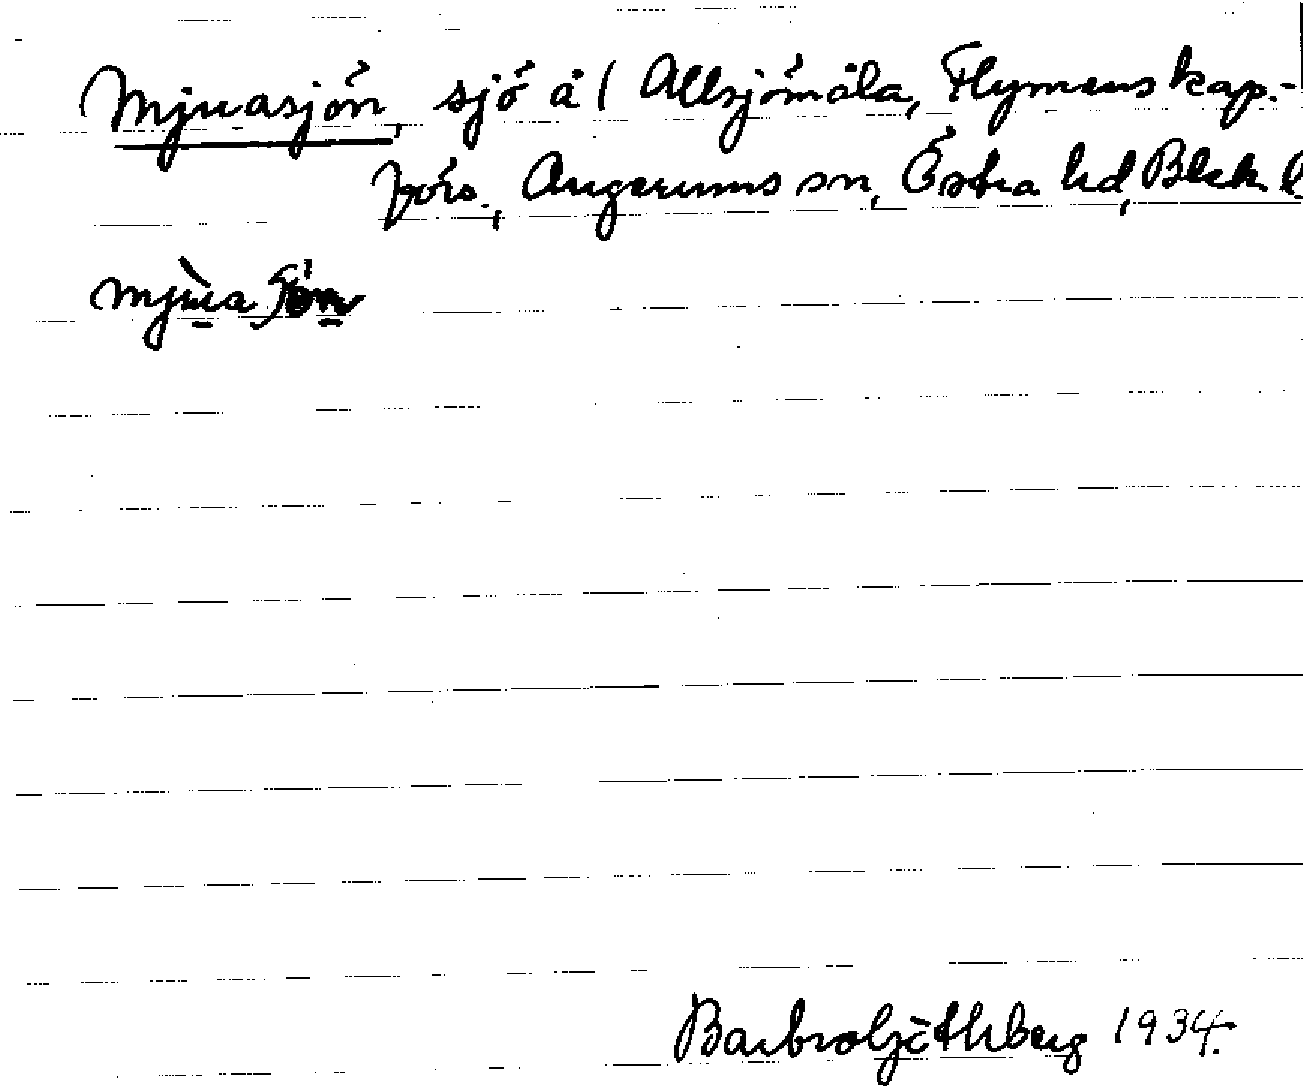 Mjuasjön, sjö å ( Allsjömåla, Flymens kap.-
förs., Augerums sn, Östra hd, Blek. l
mjùa
Barbro Göthberg 1934.